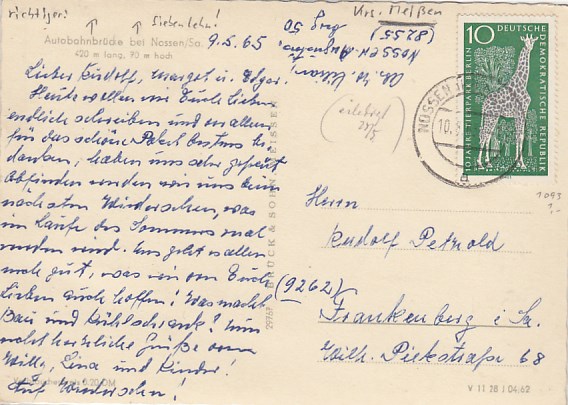 richtiger: Siebenlehn!
Autobahnbrücke bei Nossen/Sa.
420 m lang, 90 m hoch
9.5.65
Krs. Meißen
(8255)
NOSSEN-Augustusberg 50
erledigt
Lieber Rudolf, Margot u. Elgar!
Heute wollen wir Euch Lieben
endlich schreiben und vor allem
für das schöne Paket bestens be
danken, haben uns sehr gefreut
Abfinden werden wir uns beim
nächsten Wiedersehen, was
im Laufe des Sommers mal
werden wird. Uns geht es allen
noch gut, was wir von Euch
Lieben auch hoffen! Was macht
Bau und Kühlschrank? Nun
recht herzliche Grüße von
Willy, Lina und Kinder!
Auf Wiedersehen!
0,20 DM
29767 BRÜCK & SOHN MEISSEN
10 DEUTSCHE
DEMOKRATISCHE REPUBLIK
10 JAHRE TIERPARK BERLIN
NOSSEN
10.
a
1093
1,-
Herrn
Rudolf Petzold
(9262)
Frankenberg i. Sa.
Wilh. Pieckstraße 68
V 11 28 J 04/62